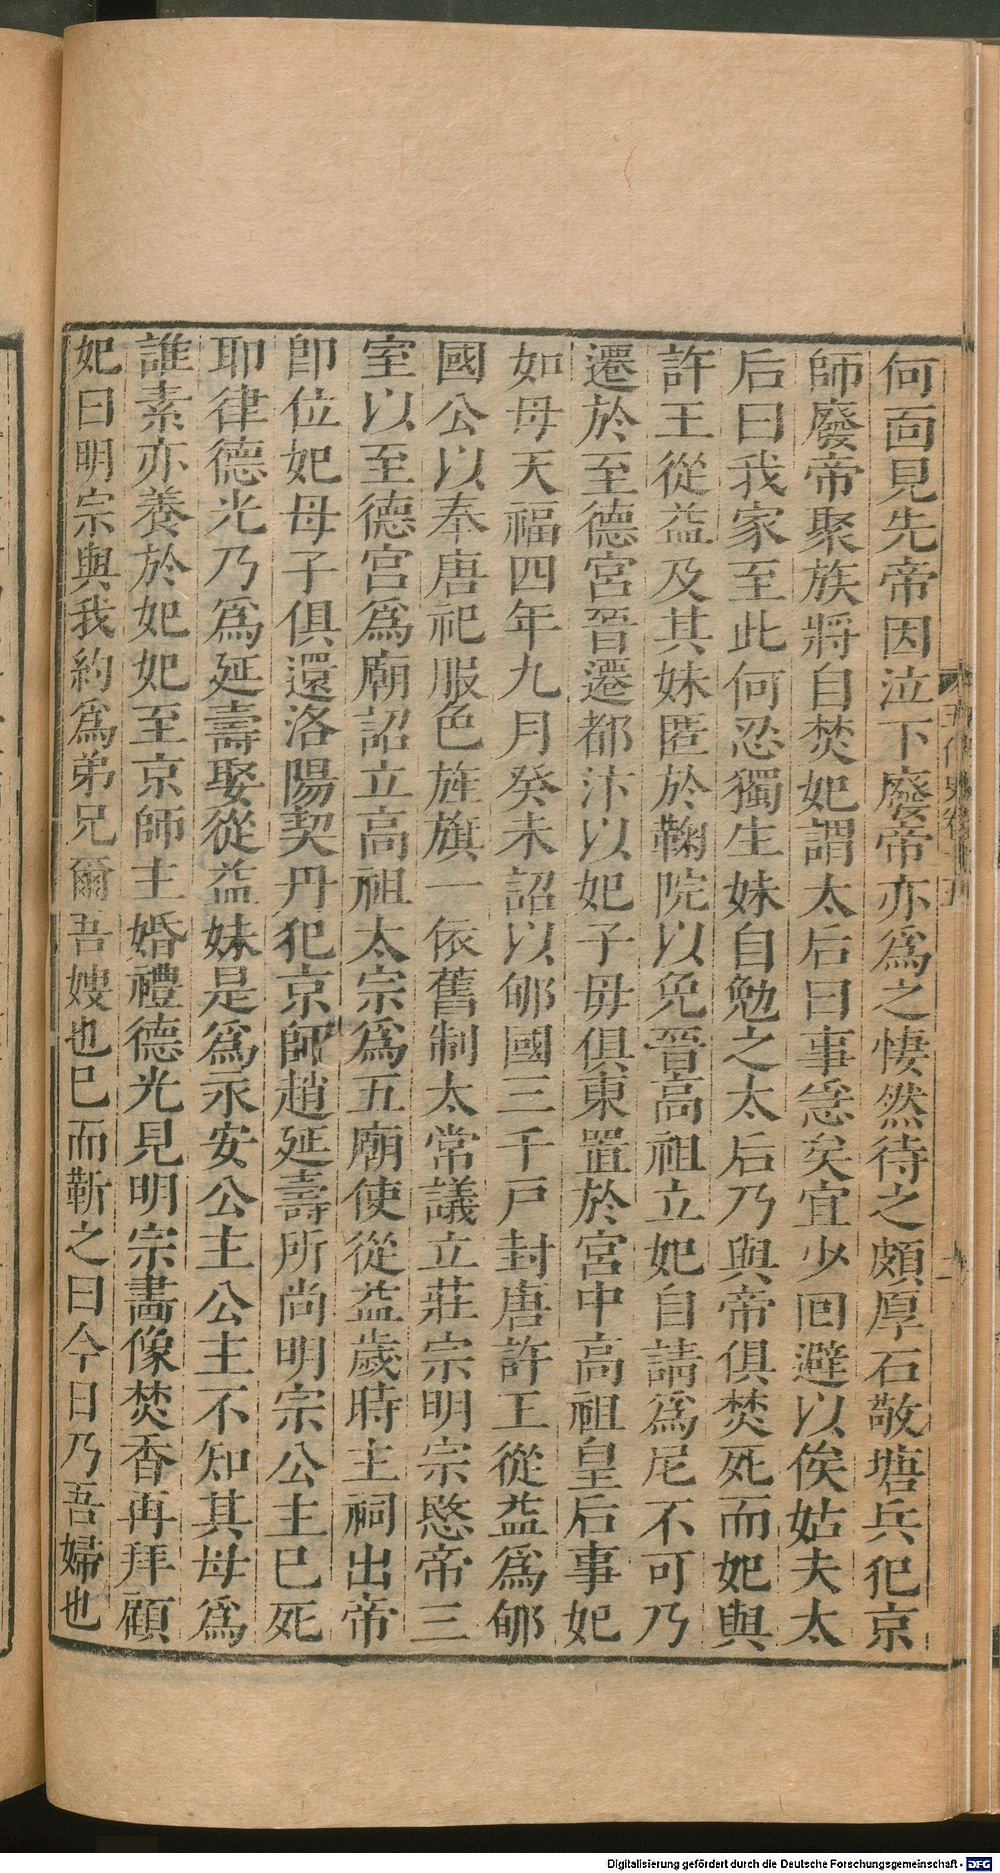 何面見先帝因泣下廢帝亦爲之悽然待之頗厚石敬塘兵犯京
師廢帝聚族將自焚妃謂太后曰事急矣宜少回避以俟姑夫太
后曰我家至此何忍獨生妹自勉之太后乃與帝俱焚死而妃與
許王從益及其妹匿於鞠院以免晉高祖立妃自請爲尼不可乃
遷於至德宮晉遷都汴以妃子母俱東置於宮中高祖皇后事妃
如母天福四年九月癸未詔以郇國三千戸封唐許王從益爲郇
國公以奉唐祀服色旌旗一依舊制太常議立莊宗明宗愍帝三
室以至德宮爲廟詔立高祖太宗爲五廟使從益歲時主祠出帝
卽位妃母子俱還洛陽契丹犯京師趙延壽所尚明宗公主已死
耶律德光乃爲延壽娶從益妹是爲永安公主公主不知其母爲
誰素亦養於妃妃至京師主婚禮德光見明宗畫像焚香再拜顧
妃曰明宗與我約爲弟兄爾吾嫂也已而靳之曰今日乃吾婦也
五代史卷十五
Digitalisierung gefördert durch die Deutsche Forschungsgemeinschaft - DFG